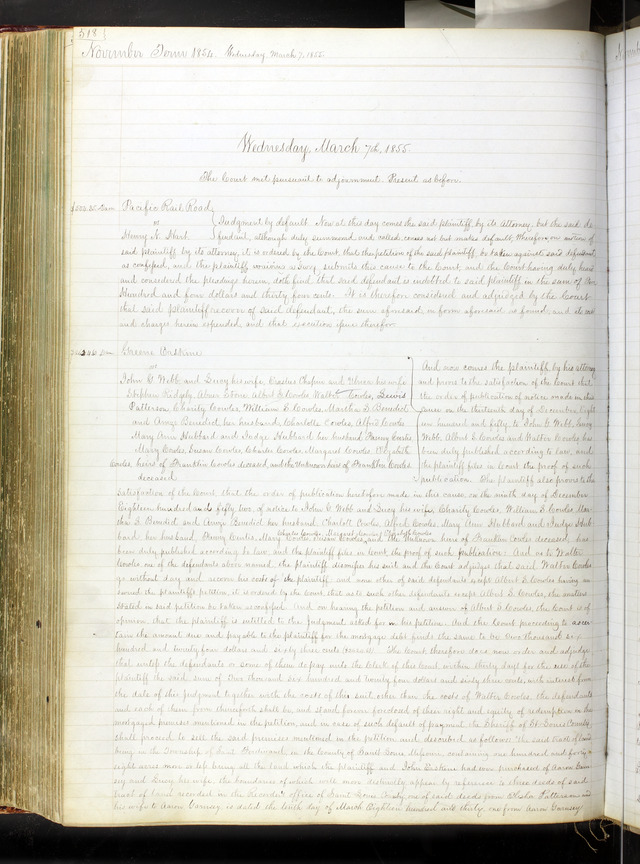 518
November Term 1854. Wednesday March 7, 1855
Wednesday, March 7th, 1855
The Court met pursuant to adjournment. Present as before.
Pacific Rail Road
vs
Henry N. Hart
Judgment by default. Now at this day comes the said plaintiff, by its Attorney, but the said de-
fendant, although duly summoned and called, comes not but makes default, therefore on motion of
said plaintiff by its attorney, it is ordered by the Court, that the petition of the said plaintiff, be taken against said defendant
as confessed, and the plaintiff waiving a Jury, submits this cause to the Court, and the Court having duly heard
and considered the pleadings herein, doth find, that said defendant is indebted to said plaintiff in the sum of
Hundred and four dollars and thirty four cents. It is therefore considered and adjudged by the Court
that said plaintiff recover of said defendant, the sum aforesaid, in form aforesaid as found, and its costs
and charges herein expended, and that execution issue therefor.
Greene Erskine
vs
John G Webb and Lucy his wife, Erastus Chapin and his wife
Stephen Ridgely, Abner Stone, Albert G Cowles, Walter Cowles, Lewis
Patterson, Charity Cowles, William E Cowles, Martha S. Benedict
and Amzi Benedict her husband, Charlotte Cowles, Alfred Cowles
Mary Ann Hubbard and Judge Hubbard her husband, Fanny Cowles
Mary Cowles, Susan Cowles, Charles Cowles, Margaret Cowles, Elizabeth
Cowles, heirs of Franklin Cowles deceased, and the Unknown heirs of Franklin Cowles
deceased
And now comes the plaintiff by his attorney
and proves to the satisfaction of the Court that
the order of publication of notice made in this
cause on the thirteenth day of December, Eight-
een hundred and fifty to John G Webb, Lucy
Webb, Albert G Cowles and Walter Cowles has
been duly published according to law, and
the plaintiff files in Court the proof of such
publication. The plaintiff also proves to the
satisfaction of the Court that the order of publication heretofore made in this cause on the ninth day of December
Eighteen hundred and fifty two, of notice to John G Webb and Lucy his wife, Charity Cowles, William E Cowles, Mar-
tha S. Benedict and Amzi Benedict her husband, Charlott Cowles, Alfred Cowles, Mary Ann Hubbard and Judge Hub-
bard her husband, Fanny Cowles, Mary Cowles, Susan Cowles, Charles Cowles, Margaret Cowles, Elizabeth Cowles and the Unknown heirs of Franklin Cowles deceased, has
been duly published according to law, and the plaintiff files in Court the proof of such publication. And as to Walter
Cowles, one of the defendants above named, the plaintiff dismisses his suit and the Court adjudges that said Walter Cowles
go without day and recover his costs of the plaintiff, and none other of said defendants except Albert G Cowles having an-
swered the plaintiffs petition, it is ordered by the Court that as to such other defendants except Albert G. Cowles, the matters
stated in said petition be taken as confessed. And on hearing the petition and answer of Albert G Cowles, the Court is of
opinion that the plaintiff is entitled to the Judgment asked for in his petition. And the Court proceeding to ascer-
tain the amount due and payable to the plaintiff for the mortgage debt finds the same to be Two thousand six
hundred and twenty four dollars and sixty three cents. The Court therefore does now order and adjudge
that unless the defendants or some of them do pay unto the clerk of this Court within thirty days for the use of the
plaintiff the said sum of Two thousand six hundred and twenty four dollars and sixty three cents, with interest from
the date of this judgment together with the costs of this suit other than the costs of Walter Cowles, the defendants
and each of them from thenceforth shall be and stand forever foreclosed of their right and equity of redemption in the
mortgaged premises mentioned in the petition, and in case of such default of payment the Sheriff of St. Louis County
shall proceed to sell the said premises mentioned in the petition and described as follows. The said tract of land
being in the Township of Saint Ferdinand, in the County of Saint Louis Missouri, containing one hundred and forty
eight acres more or less being all the land which the plaintiff and John Erskine had been purchased of Aaron
and Lucy his wife, the boundaries of which will more distinctly appear by reference to three deeds of said
tract of land recorded in the Recorder's office of Saint Louis County, one of said deeds from Elisha Patterson and
his wife to Aaron is dated the tenth day of March Eighteen hundred and thirty, one from Aaron